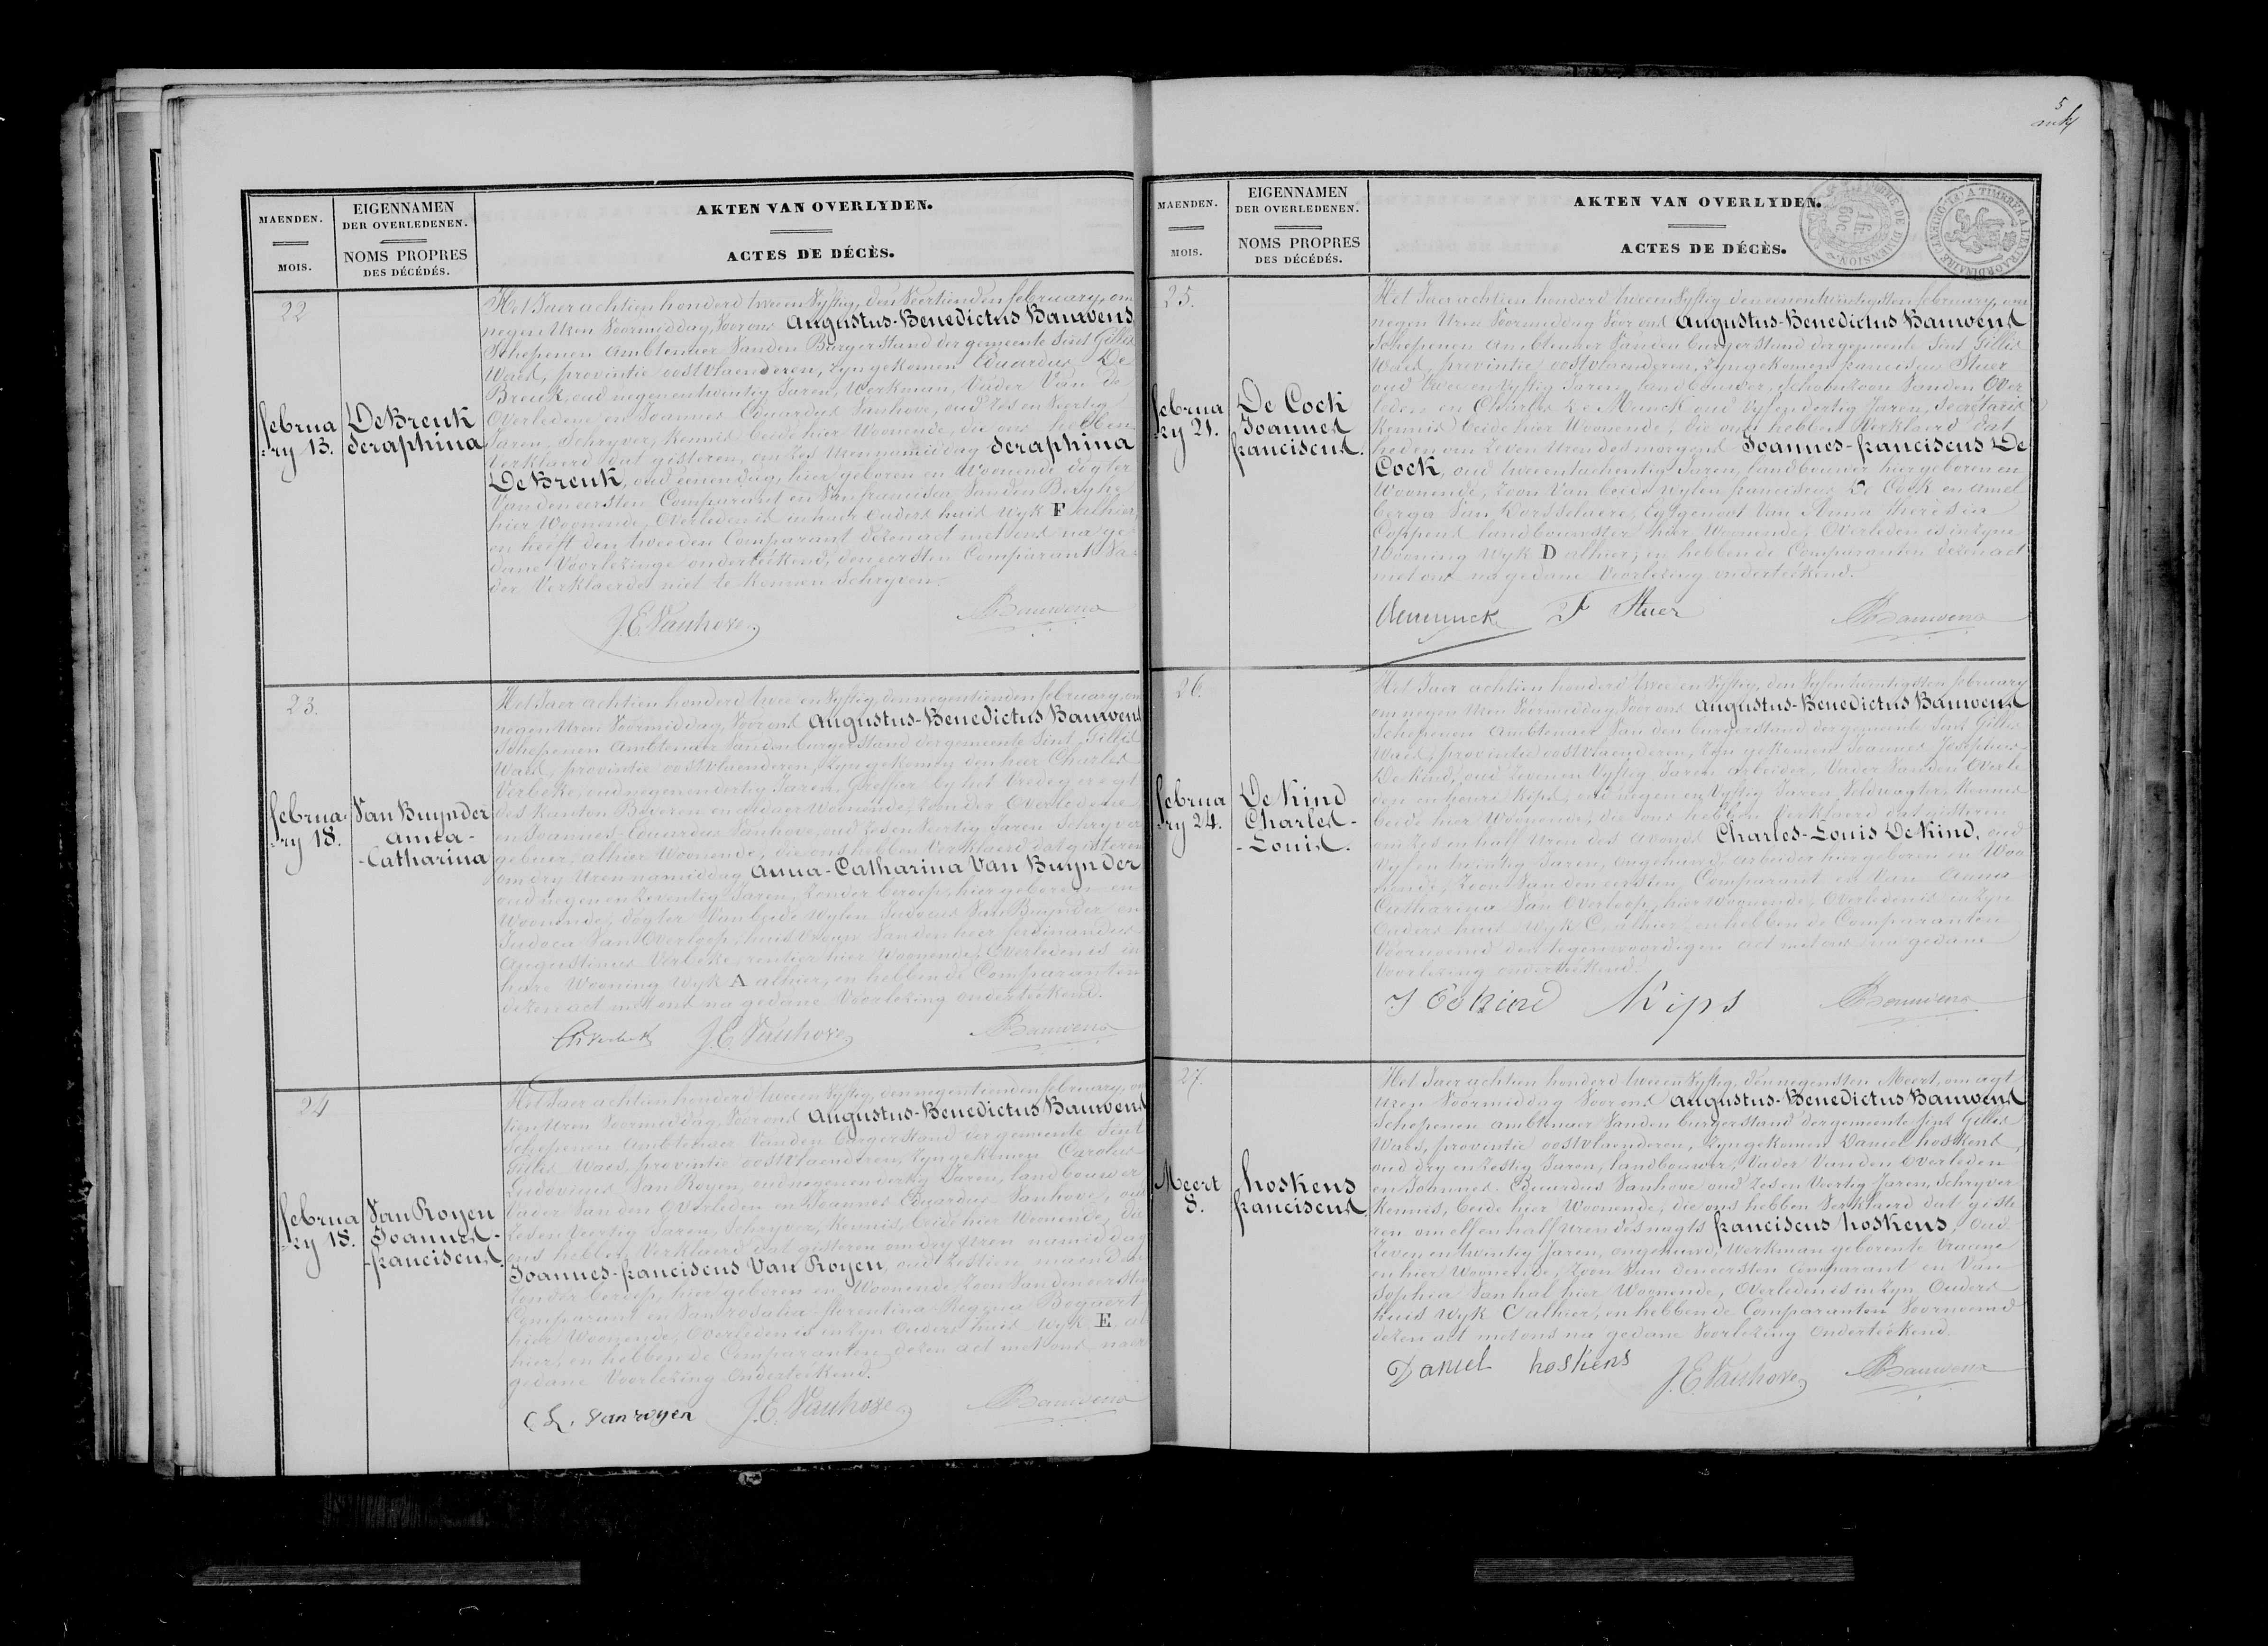 MAENDEN.
MOIS.
EIGENNAMEN
DER OVERLEDENEN.
NOMS PROPRES
DES DÉCÉDÉS.
AKTEN VAN OVERLYDEN.
ACTES DE DÉCÈS.
22
februa
ry 13.
De Breuk
Seraphina
Het Jaer achtien honderd twee en Vyftig, den Veertienden february, om
negen Uren Voormiddag, Voor ons Augustus-Benedictus Bauwens
Schepenen Ambtenaer Van den Burgerstand der gemeente Sint Gillis
Waes, provintie oostvlaenderen, Zyn gekomen Eduardus De
Breuk, oud negenentwintig Jaren, Werkman, Vader Van de
Overledene en Joannes Eduardus Vanhove, oud Zes en Veertig
Jaren, Schryver, Kennis beide hier Woonende, die ons hebben
Verklaerd dat gisteren, om Zes Uren namiddag Seraphina
De Breuk, oud eenen dag, hier geboren en Woonende dogter
Van den eersten Comparant en Van francisca Van den Berghe
hier Woonende, Overleden is in haer Ouders huis Wyk F alhier,
en heeft den tweeden Comparant dezen act met ons na ge
dane Voorlezinge onderteekend, den eersten Comparant Va
der Verklaerde niet te konnen Schryven.
J.E. Vanhove
Bauwens
23.
februa
ry 18.
Van Buynder
Anna-
-Catharina
Het Jaer achtien honderd twee en Vyftig, den negentienden february, om
negen Uren Voormiddag, Voor ons Augustus-Benedictus Bauwens
Schepenen Ambtenaer Van den burgerstand der gemeente Sint Gillis
Waes, provintie oostvlaenderen, Zyn gekomen den heer Charles
Verbeke, oud negenendertig Jaren, Greffier by het Vredegeregt
des Kanton Beveren en aldaer Woonende, Zoon der Overledene
en Joannes-Eduardus Vanhove, oud Zes en Veertig Jaren Schryver
gebuer, alhier Woonende, die ons hebben Verklaerd dat gisteren
om dry Uren namiddag Anna-Catharina Van Buynder
oud negen en Zeventig Jaren, Zonder beroep, hier geboren en
Woonende, dogter Van beide Wylen Judocus Van Buynder en
Judoca Van Overloop, huisvrouw Van den heer ferdinandus
Augustinus Verbeke, rentier hier Woonende, Overleden is in
hare Wooning Wyk A alhier, en hebben de Comparanten
dezen act met ons na gedane Voorlezing onderteekend.
J.E. Vanhove
Bauwens
24
februa
ry 18.
Van Royen
Joannes-
-franciscus
Het Jaer achtien honderd twee en Vyftig, den negentienden february, om
tien Uren Voormiddag, Voor ons Augustus-Benedictus Bauwens
Schepenen Ambtenaer Van den burgerstand der gemeente Sint
Gillis Waes, provintie oostvlaenderen, Zyn gekomen Carolus
Ludovicus Van Royen, oud negenendertig Jaren, landbouwer
Vader Van den Overleden en Joannes Eduardus Vanhove, oud
Zes en Veertig Jaren, Schryver, Kennis, beide hier Woonende, die
ons hebben Verklaerd dat gisteren om dry Uren namiddag
Joannes-franciscus Van Royen, oud Zestien maenden
Zonder beroep, hier geboren en Woonende, Zoon Van den eersten
Comparant en Van rosalia-florentina-Regina Bogaert
hier Woonende, Overleden is in Zyn Ouders huis Wyk E al
hier, en hebben de Comparanten dezen act met ons naer
gedane Voorlezing Onderteekend.
C L. Vanroyen
J.E. Vanhove
Bauwens
5
MAENDEN.
MOIS.
EIGENNAMEN
DER OVERLEDENEN.
NOMS PROPRES
DES DÉCÉDÉS.
AKTEN VAN OVERLYDEN.
ACTES DE DÉCÈS.
25.
februa
ry 21.
De Cock
Joannes
franciscus.
Het Jaer achtien honderd twee en Vyftig den eenentwintigsten february, om
negen Uren Voormiddag Voor ons Augustus-Benedictus Bauwens
Schepenen Ambtenaer Van den burgerstand der gemeente Sint Gillis
Waes, provintie oostvlaenderen, Zyn gekomen franciscus Stuer
oud twee en Vyftig Jaren, landbouwer, Schoonzoon Van den Over
leden en Charles De Munck oud Vyfendertig Jaren, Secretaris
Kennis beide hier Woonende, die ons hebben Verklaerd dat
heden om Zeven Uren des morgens Joannes-franciscus De
Cock, oud tweeentachentig Jaren, landbouwer hier geboren en
Woonende, Zoon Van beide wylen franciscus De Cock en Amel
berga Van Korsselaere, Egtgenoot Van Anna Theresia
Coppens landbouwster hier Woonende, Overleden is in Zyne
Wooning Wyk D alhier; en hebben de Comparanten dezen act
met ons na gedane Voorlezing onderteekend.
Demunck
F Stuer
Bauwens
26.
februa
ry 24.
De Kind
Charles-
-Louis.
Het Jaer achtien honderd twee en Vyftig, den Vyfentwintigsten february
om negen Uren Voormiddag, Voor ons Augustus-Benedictus Bauwens
Schepenen Ambtenaer Van den burgerstand der gemeente Sint Gillis
Waes, provintie oostvlaenderen, Zyn gekomen Joannes Josephus
De Kind, oud Zevenen Vyftig Jaren arbeider, Vader Van den Overle
den en henri Kips, oud negen en Vyftig Jaren, Veldwagter, Kennis
beide hier Woonende, die ons hebben Verklaerd dat gisteren
om Zes en half Uren des avonds Charles-Louis De Kind, oud
Vyf en twintig Jaren, Ongehuwd, arbeider hier geboren en Woo
nende, Zoon Van den eersten Comparant en Van Anna
Catharina Van Overloop, hier Woonende, Overleden is in Zyn
Ouders huis Wyk C, alhier, en hebben de Comparanten
Voornoemd den tegenwoordigen act met ons na gedane
Voorlezing onderteekend.
Kips
Bauwens
27.
Meert
8.
hoskens
franciscus
Het Jaer achtien honderd twee en Vyftig, den negensten Meert, om agt
uren Voormiddag Voor ons Augustus-Benedictus Bauwens
Schepenen ambtenaer Van den burgerstand der gemeente Sint Gillis
Waes, provintie oostvlaenderen, Zyn gekomen Daniel hoskens,
oud dry en Zestig Jaren, landbouwer, Vader Van den Overleden
en Joannes-Eduardus Vanhove oud Zes en Veertig Jaren, Schryver
Kennis, beide hier Woonende, die ons hebben Verklaerd dat giste
ren om elf en half uren des nagts franciscus hoskens, Oud
Zeven en twintig Jaren, ongehuwd, Werkman geboren te Vracene
en hier Woonende, Zoon Van den eersten Comparant en Van
Sophia Van hal hier Woonende, Overleden is in Zyn Ouders
huis Wyk C alhier, en hebben de Comparanten Voornoemd
dezen act met ons na gedane Voorlezing Onderteekend.
Daniel hoskens
J.E. Vanhove
Bauwens